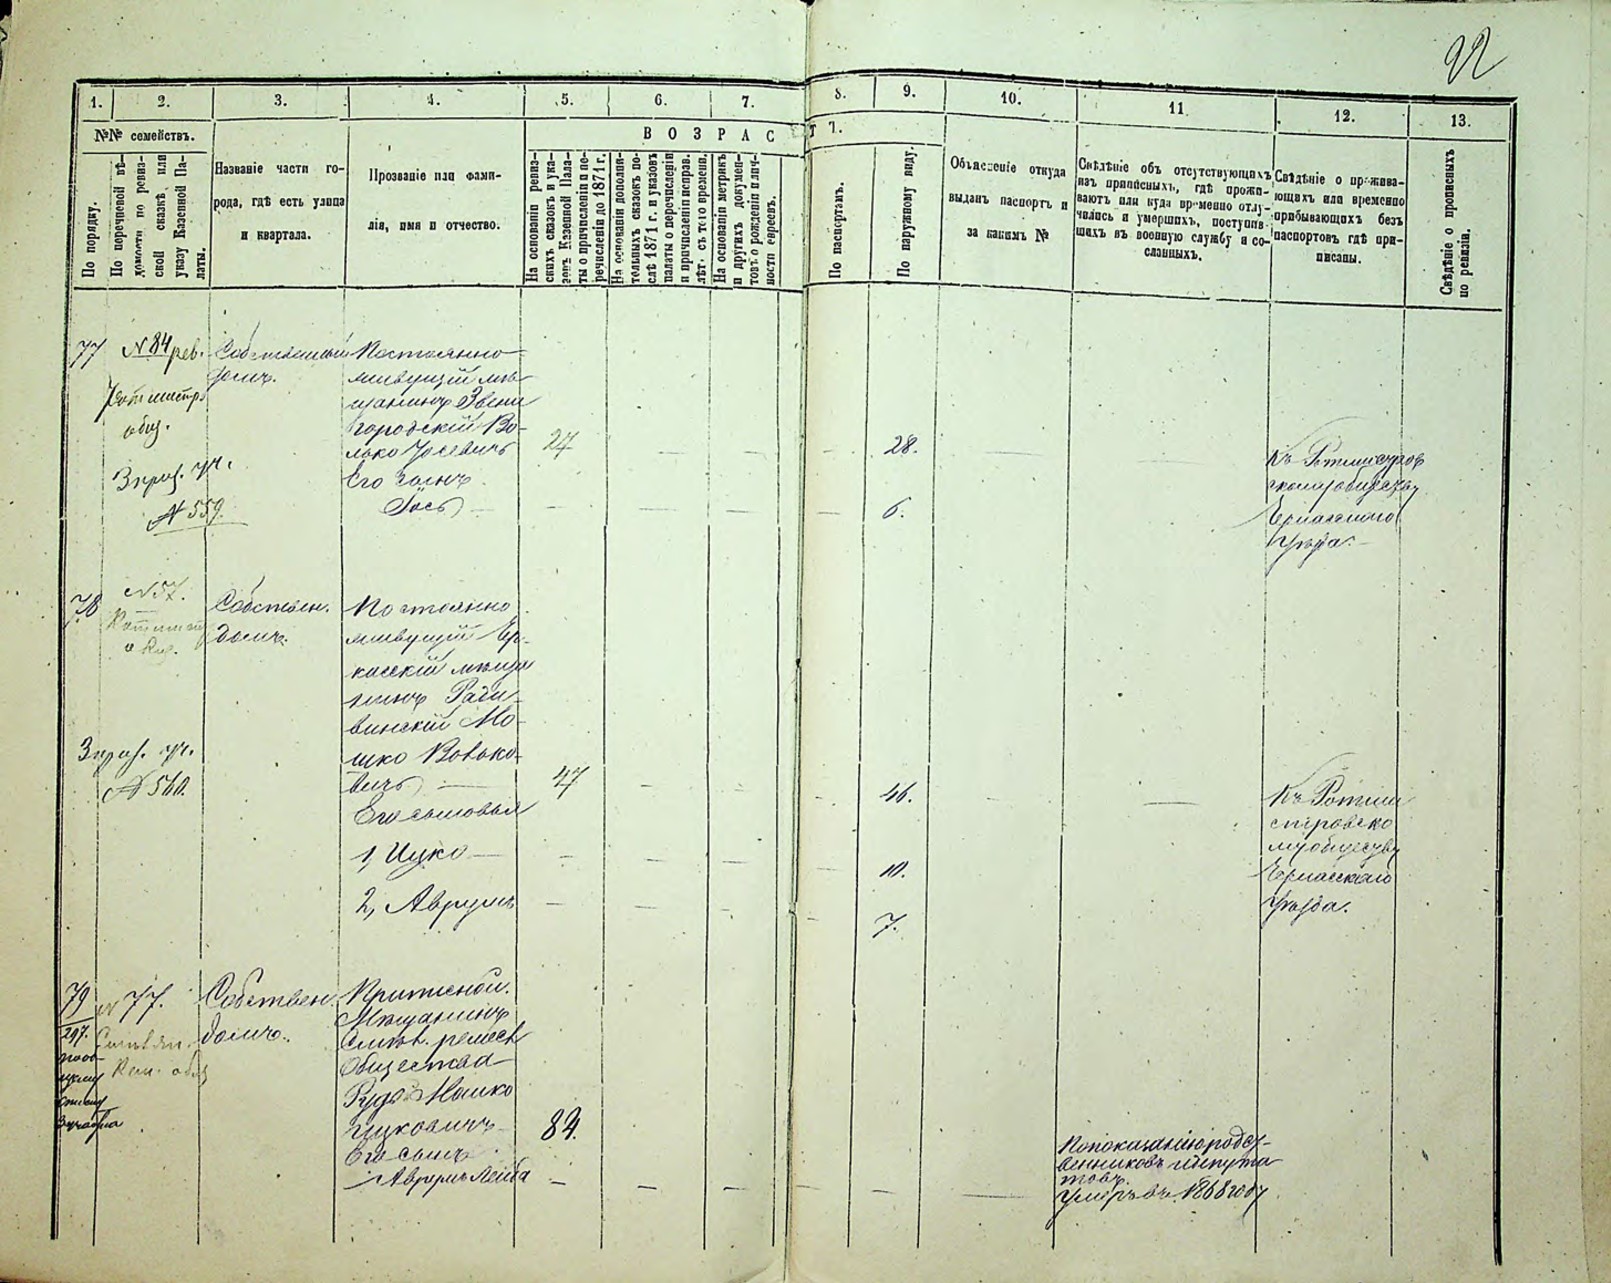 22
1.
2.
3.
4.
5.
6.
7.
8.
9.
10.
11
12.
13.
№№ семействъ.
ВОЗРАСТ
По порядку.
По перечневой вѣ-
домости по ревиз-
ской сказкѣ или
указу Казенной Па-
латы.
Названіе части го-
рода, гдѣ есть улица
и квартала.
Прозваніе или фами-
лія, имя и отчество.
На основаніи ревиз-
скихъ сказокъ и ука-
зовъ Казенной Пала-
ты о причисленіи и пе-
речисленіи до 1871 г.
На основаніи дополни-
тельныхъ сказокъ по-
слѣ 1871 г. и указовъ
палаты о перечисленіи
и причисленіи исправ.
лѣт. съ того времени.
На основаніи метрикъ
и другихъ докумен-
товъ о рожденіи и лич-
ности евреевъ.
По паспортамъ.
По наружному виду.
Объясненіе откуда
выданъ паспортъ и
за какимъ №
Свѣдѣніе объ отсутствующихъ
изъ приписныхъ, гдѣ прожи-
ваютъ или куда временно отлу-
чились и умершихъ, поступив-
шихъ въ военную службу и со-
сланныхъ.
Свѣдѣніе о прожива-
ющихъ или временно
прибывающихъ безъ
паспортовъ гдѣ при-
писаны.
Свѣдѣніе о прописныхъ
по ревизіи.
77
№ 84 рев.
Ротмистр.
общ.
№ 559.
Собственный
домъ.
Постоянно
живущій мѣ-
щанинъ Звени
городскій Во-
лько Іосевичъ
27
28.
Его сынъ
Іось
6.
Къ Ротмистров
скому обществу
Черкасскаго
Уѣзда.
78
№ 57.
Собствен.
домъ.
№ 560.
Постоянно
живущій Чер-
касскій мѣща
нинъ Ради-
винскій Мо-
шко Вовько-
вичъ
47
46.
Его сыновья
1, Ицко
10.
2, Аврумъ
7.
Къ Ротми
стровско
му обществу
Черкасскаго
Уѣзда.
79
№ 77.
247.
Собствен.
домъ.
Приписной.
Мѣщанинъ
Смѣл. ремесл
Общества
Мошко
Ицковичъ
84.
Его сынъ
Аврумъ Лейба
По показанію родст-
венниковъ и депута
товъ.
Умеръ въ 1868 году